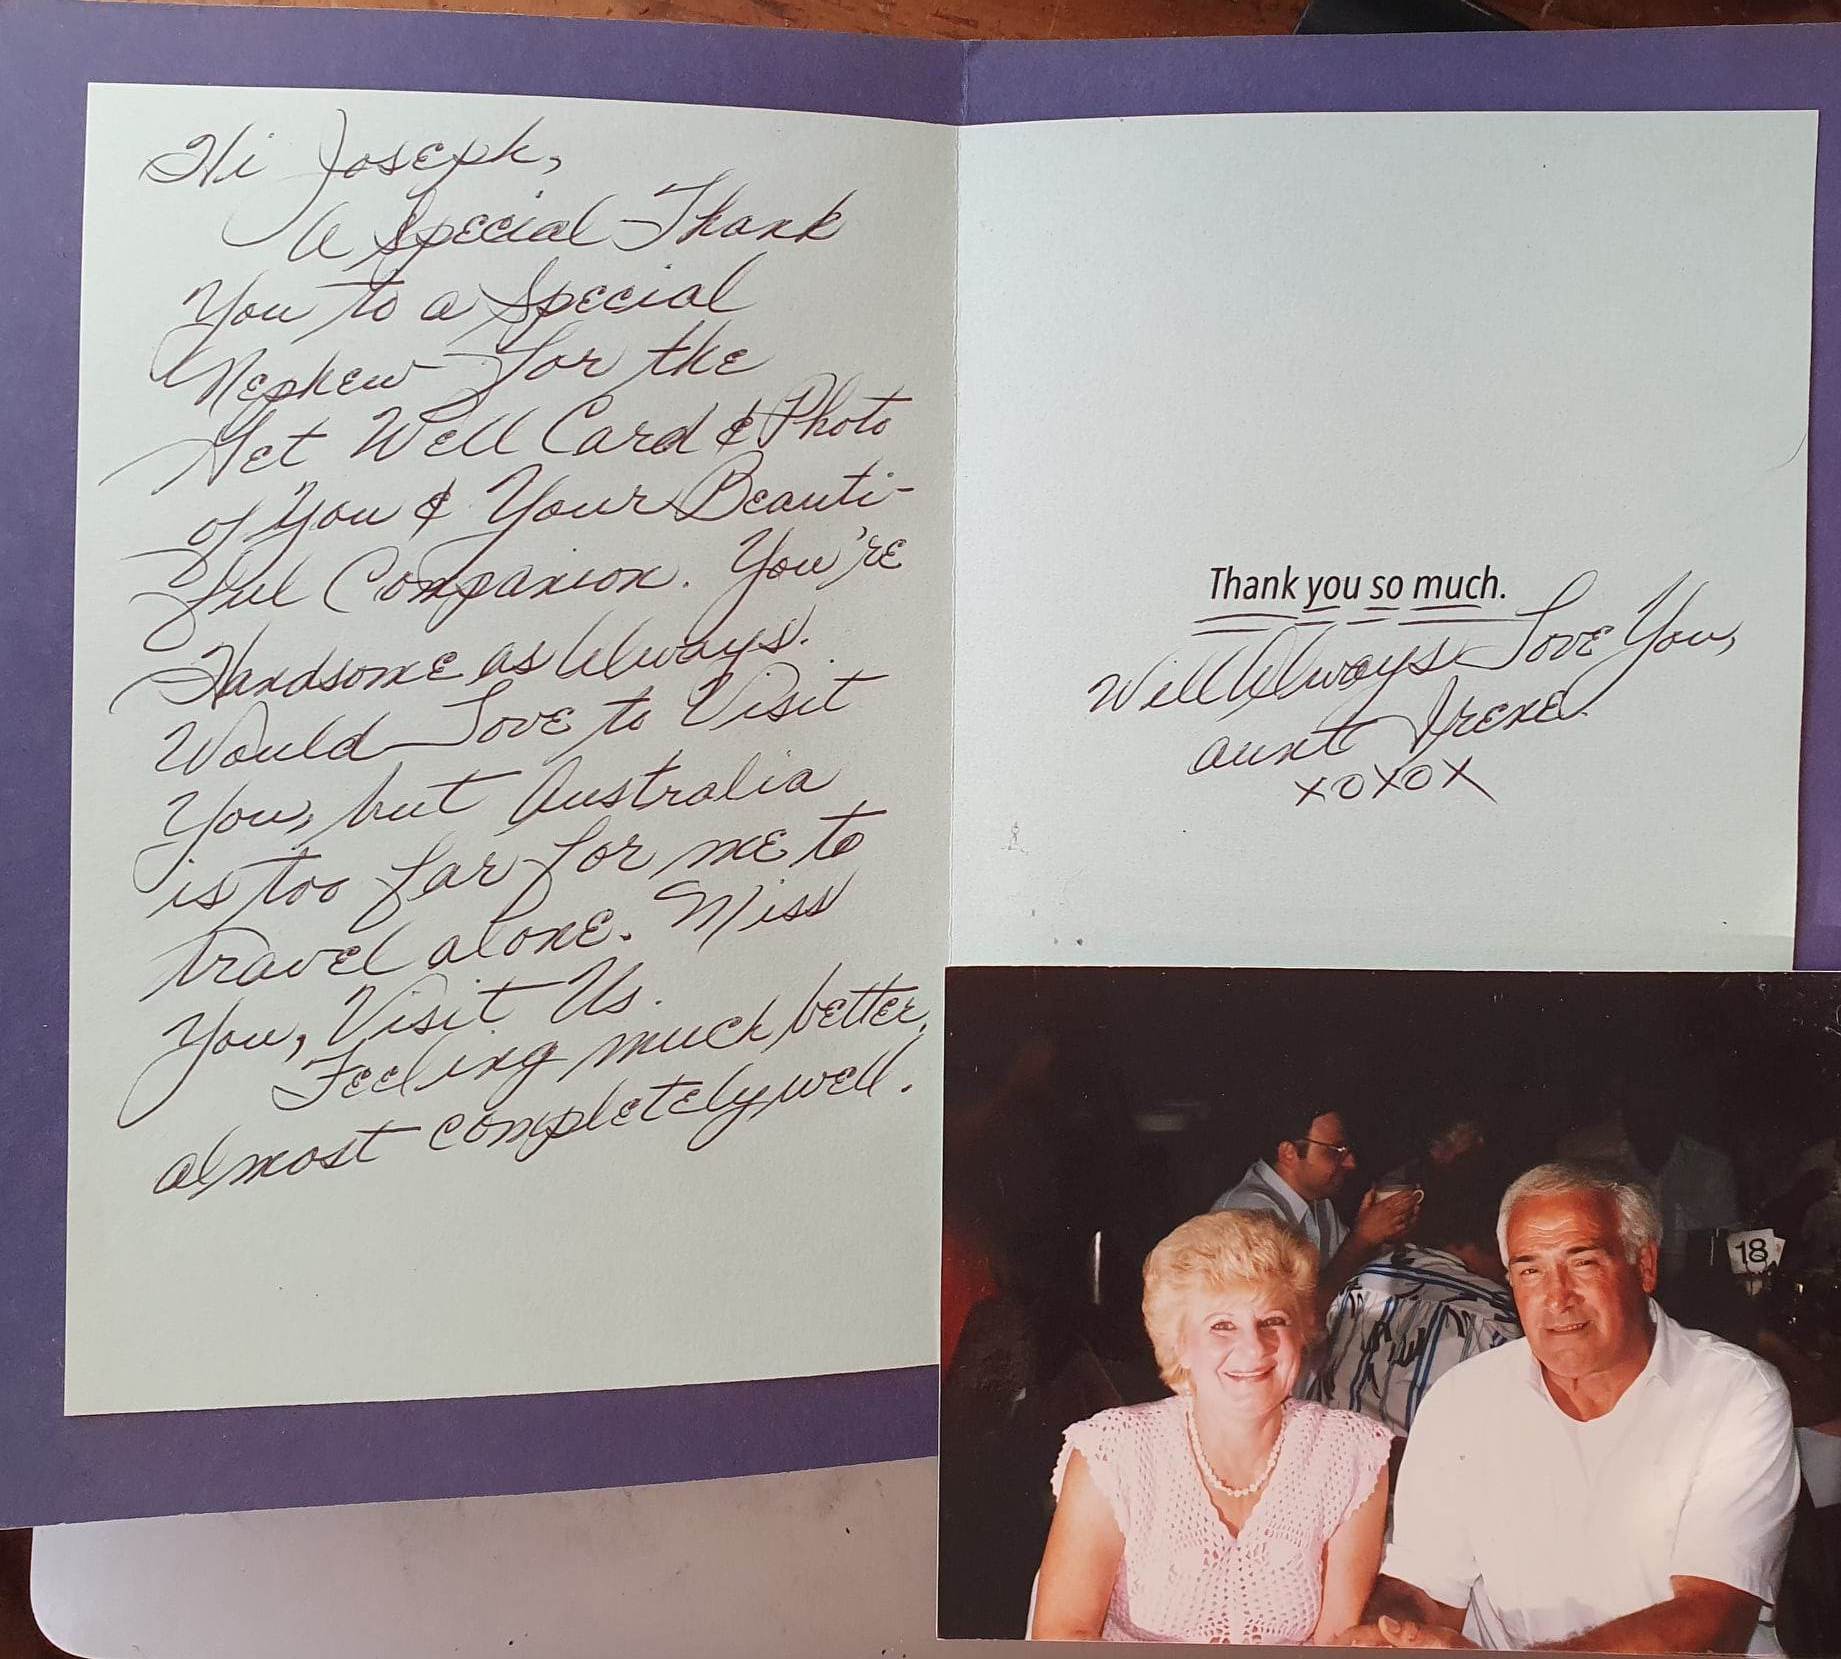 Hi Joseph,
A Special Thank
You to a Special
Nephew for the
Get Well Card & Photo
of You & Your Beauti-
ful Companion. You're
Handsome as Always.
Would Love to Visit
You, but Australia
is too far for me to
travel alone. Miss
You, Visit Us.
Feeling much better,
almost completely well.
Thank you so much.
Will Always Love You,
aunt Irene
xoxox
18